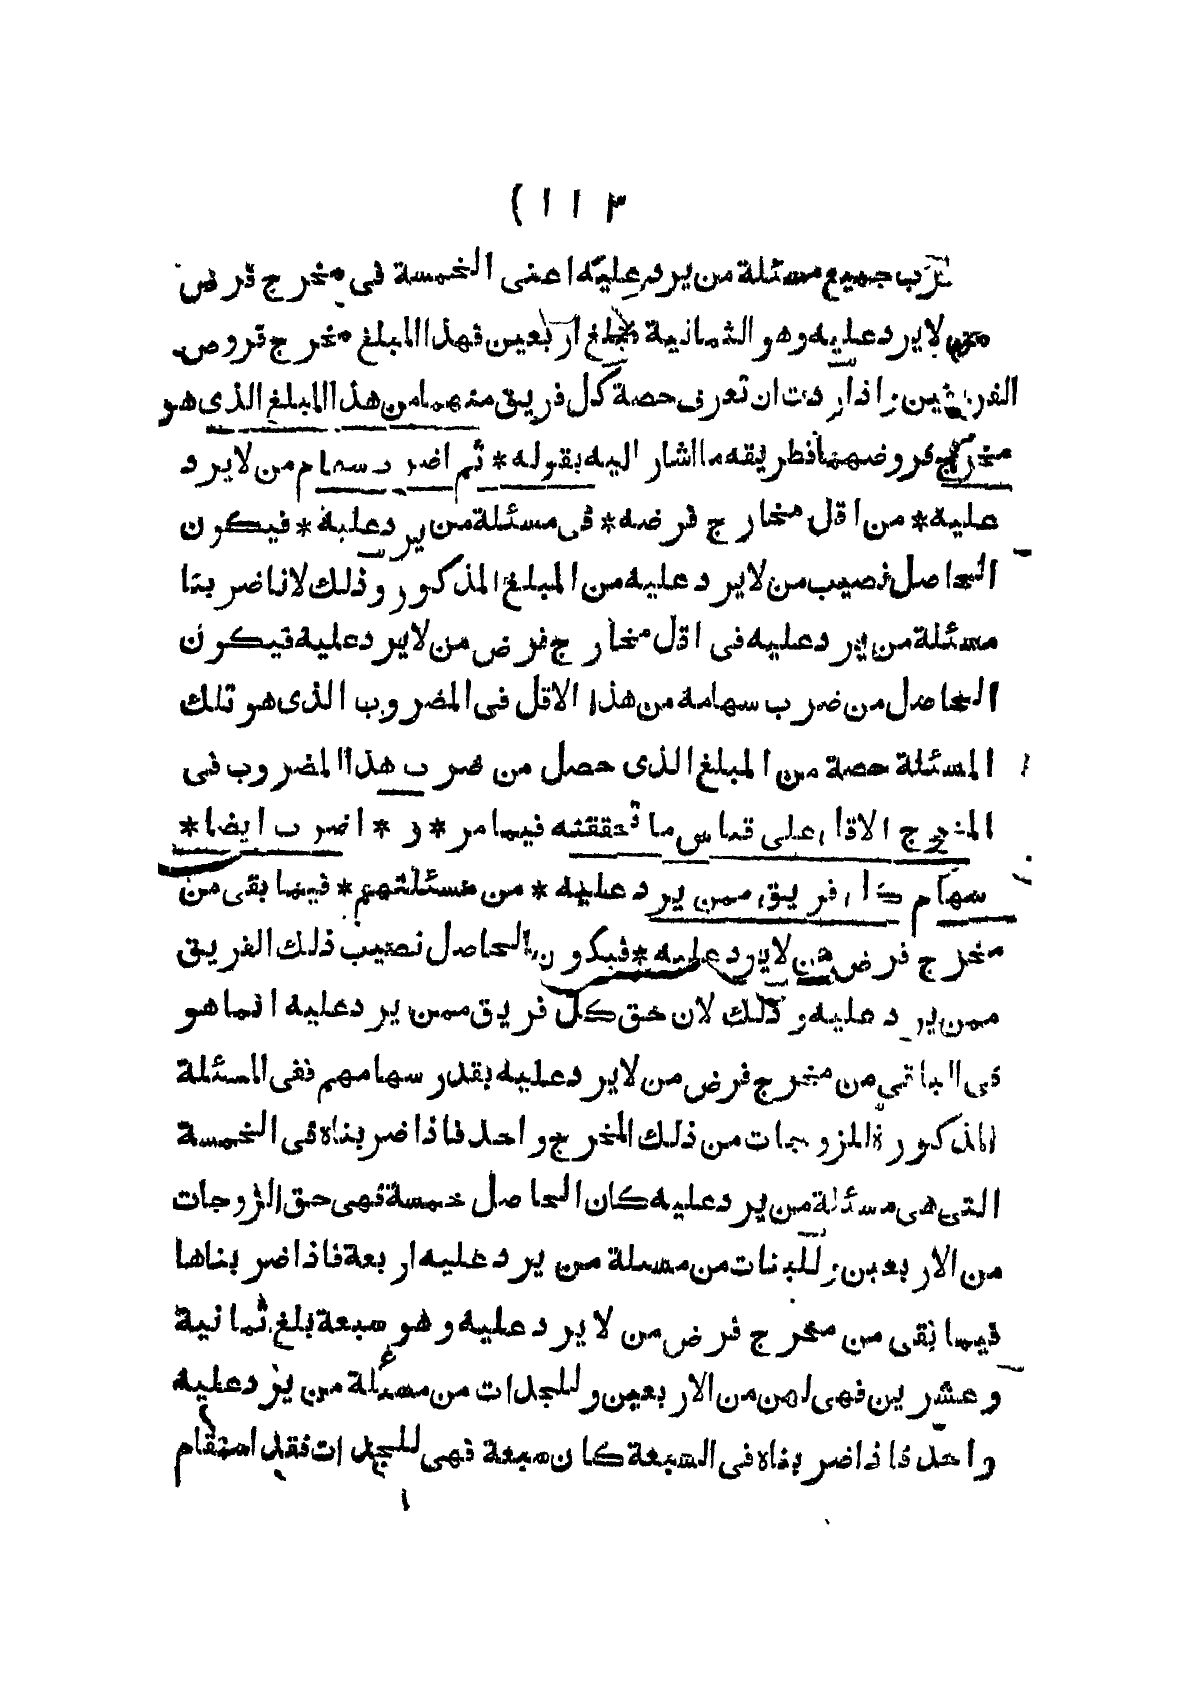 ( ١ ١ ٣
ضرب جميع مسئلة من يرد عليه اعنى الخمسة فى مخرج فرض
من لا يرد عليه وهو الثمانية بلغ اربعين فهذا المبلغ مخرج فروض
الفريقين واذا اردت ان تعرف حصة كل فريق منهما من هذا المبلغ الذى هو
مخرج فروضهما فطريقه ما اشار اليه بقوله * ثم اضرب سهام من لا يرد
عليه * من اقل مخارج فرضه * فى مسئلة من يرد عليه * فيكون
الحاصل نصيب من لا يرد عليه من المبلغ المذكور وذلك لانا ضربنا
مسئلة من يرد عليه فى اقل مخارج فرض من لا يرد عليه فيكون
الحاصل من ضرب سهامه من هذا الاقل فى المضروب الذى هو تلك
المسئلة حصة من المبلغ الذى حصل من ضرب هذا المضروب فى
المخرج الاقل على قياس ما تحققته فيما مر * و * اضرب ايضا *
سهام كل فريق ممن يرد عليه * من مسئلتهم * فيما بقى من
مخرج فرض من لا يرد عليه * فيكون الحاصل نصيب ذلك الفريق
ممن يرد عليه وذلك لان حق كل فريق ممن يرد عليه انما هو
فى الباقى من مخرج فرض من لا يرد عليه بقدر سهامهم ففى المسئلة
المذكورة للزوجات من ذلك المخرج واحد فاذا ضربناه فى الخمسة
التى هى مسئلة من يرد عليه كان الحاصل خمسة فهى حق الزوجات
من الاربعين وللبنات من مسئلة من يرد عليه اربعة فاذا ضربناها
فيما بقى من مخرج فرض من لا يرد عليه وهو سبعة بلغ ثمانية
وعشرين فهى لهن من الاربعين وللجدات من مسئلة من يرد عليه
واحد فاذا ضربناه فى السبعة كان سبعة فهى للجدات فقد استقام